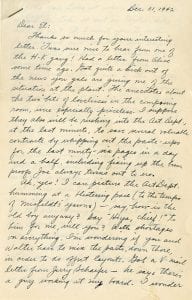 Dec. 31, 1942
Dear El:
Thanks so much for your interesting
letter. 'Twas sure nice to hear from one of
the H-K gang! Had a letter from Alice
some time ago. Got quite a kick out of
the news you gals are giving me of the
situation at the plant. The anecdotes about
the two bits of loveliness in the composing
room, are especially I suppose
they also will be rushing into the Art Dept.,
at the last minute, to save several valuable
contracts by whipping out the paste-ups
for the last ninety-six pages in a day
and a half, including fixing up the line
proofs Joe always turns out to run.
Ah, yes! I can picture the Art Dept.
humming at a blistering pace! (to the tempo
of yawns) — say, how is the
old boy anyway? Say "Hiya, chief!" to
him for me will you? With shortages
on everything, I'm wondering if you and
Walter have to mix the paste down there
in order to do offset layouts. Got a V-mail
letter from Jerry Schaefer — he says there's
a guy working at my board. I wonder